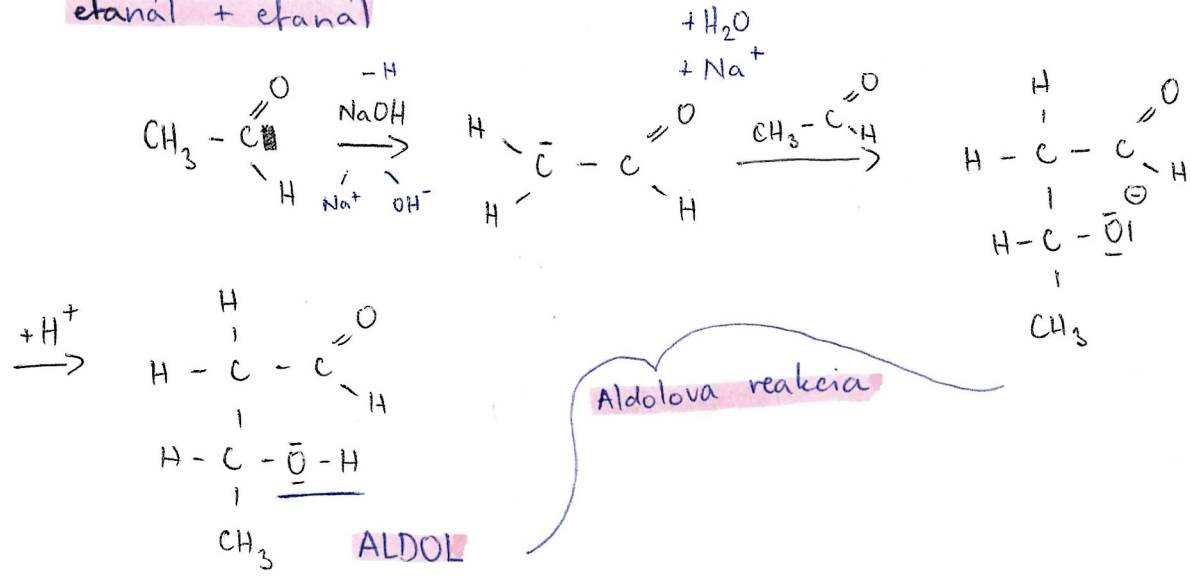 etanál + etanál
+ H₂O
+ Na⁺
CH₃ - C = O
H
- H
NaOH
Na⁺ OH⁻
H
H
C̄ - C = O
H
CH₃ - C = O
H
H
H - C - C = O
H
H - C - O̲̅| ⊖
CH₃
+ H⁺
H
H - C - C = O
H
H - C - O̲̅ - H
CH₃
ALDOL
Aldolova reakcia